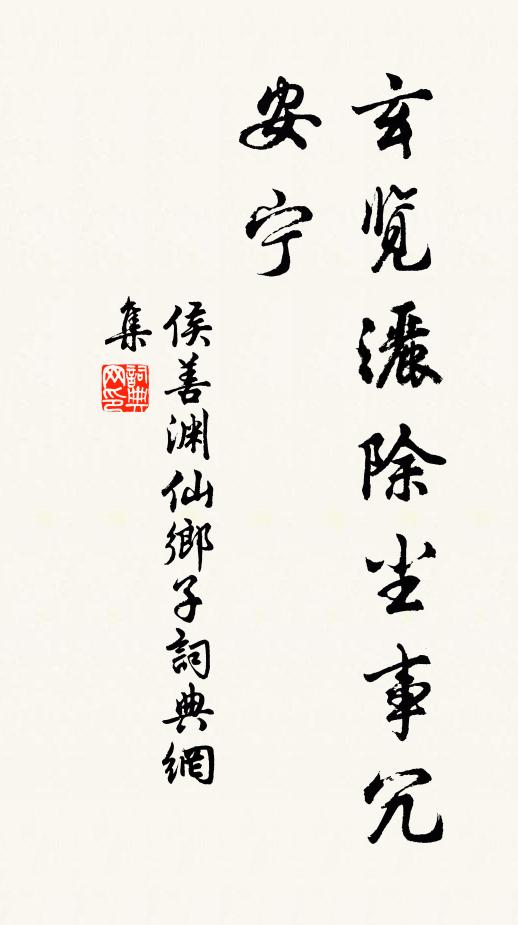 玄览灑除尘事冗
安宁
侯善渊仙鄉子詞典網
集
詞典
网印